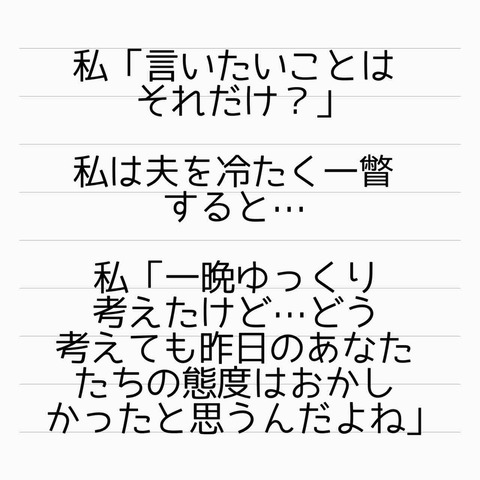 私「言いたいことは
それだけ？」
私は夫を冷たく一瞥
すると…
私「一晩ゆっくり
考えたけど…どう
考えても昨日のあなた
たちの態度はおかし
かったと思うんだよね」